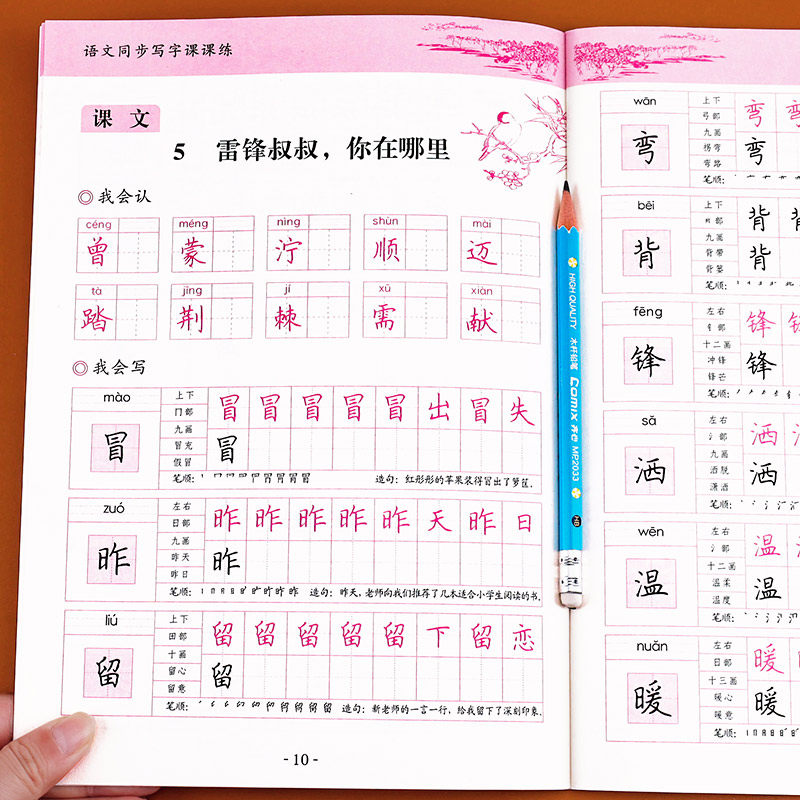 语文同步写字课课练
课 文
5 雷锋叔叔，你在哪里
◎我会认
céng méng nìng shùn mài
曾 蒙 泞 顺 迈
tà jīng jí xū xiàn
踏 荆 棘 需 献
◎我会写
mào
冒
上下
冂部
九画
冒充
假冒
冒 冒 冒 冒 冒 出 冒 失
冒
笔顺：
造句：红彤彤的苹果装得冒出了箩筐。
zuó
昨
左右
日部
九画
昨天
昨日
昨 昨 昨 昨 昨 天 昨 日
昨
笔顺：
造句：昨天，老师向我们推荐了几本适合小学生阅读的书。
liú
留
上下
田部
十画
留心
留意
留 留 留 留 留 下 留 恋
留
笔顺：
造句：新老师的一言一行，给我留下了深刻印象。
- 10 -
wān
弯
上下
弓部
九画
拐弯
弯路
弯 弯
弯
笔顺：
bēi
背
上下
九画
背带
背篓
背
背
笔顺：
fēng
锋
左右
十二画
冲锋
锋芒
锋
锋
笔顺：
sǎ
洒
左右
氵部
九画
洒脱
潇洒
洒
洒
笔顺：
wēn
温
左右
氵部
十二画
温柔
温度
温
温
笔顺：
nuǎn
暖
左右
日部
十三画
暖心
暖意
暖
暖
笔顺：
HIGH QUALITY
木杆铅笔
comix 齐心 MP2033
HB